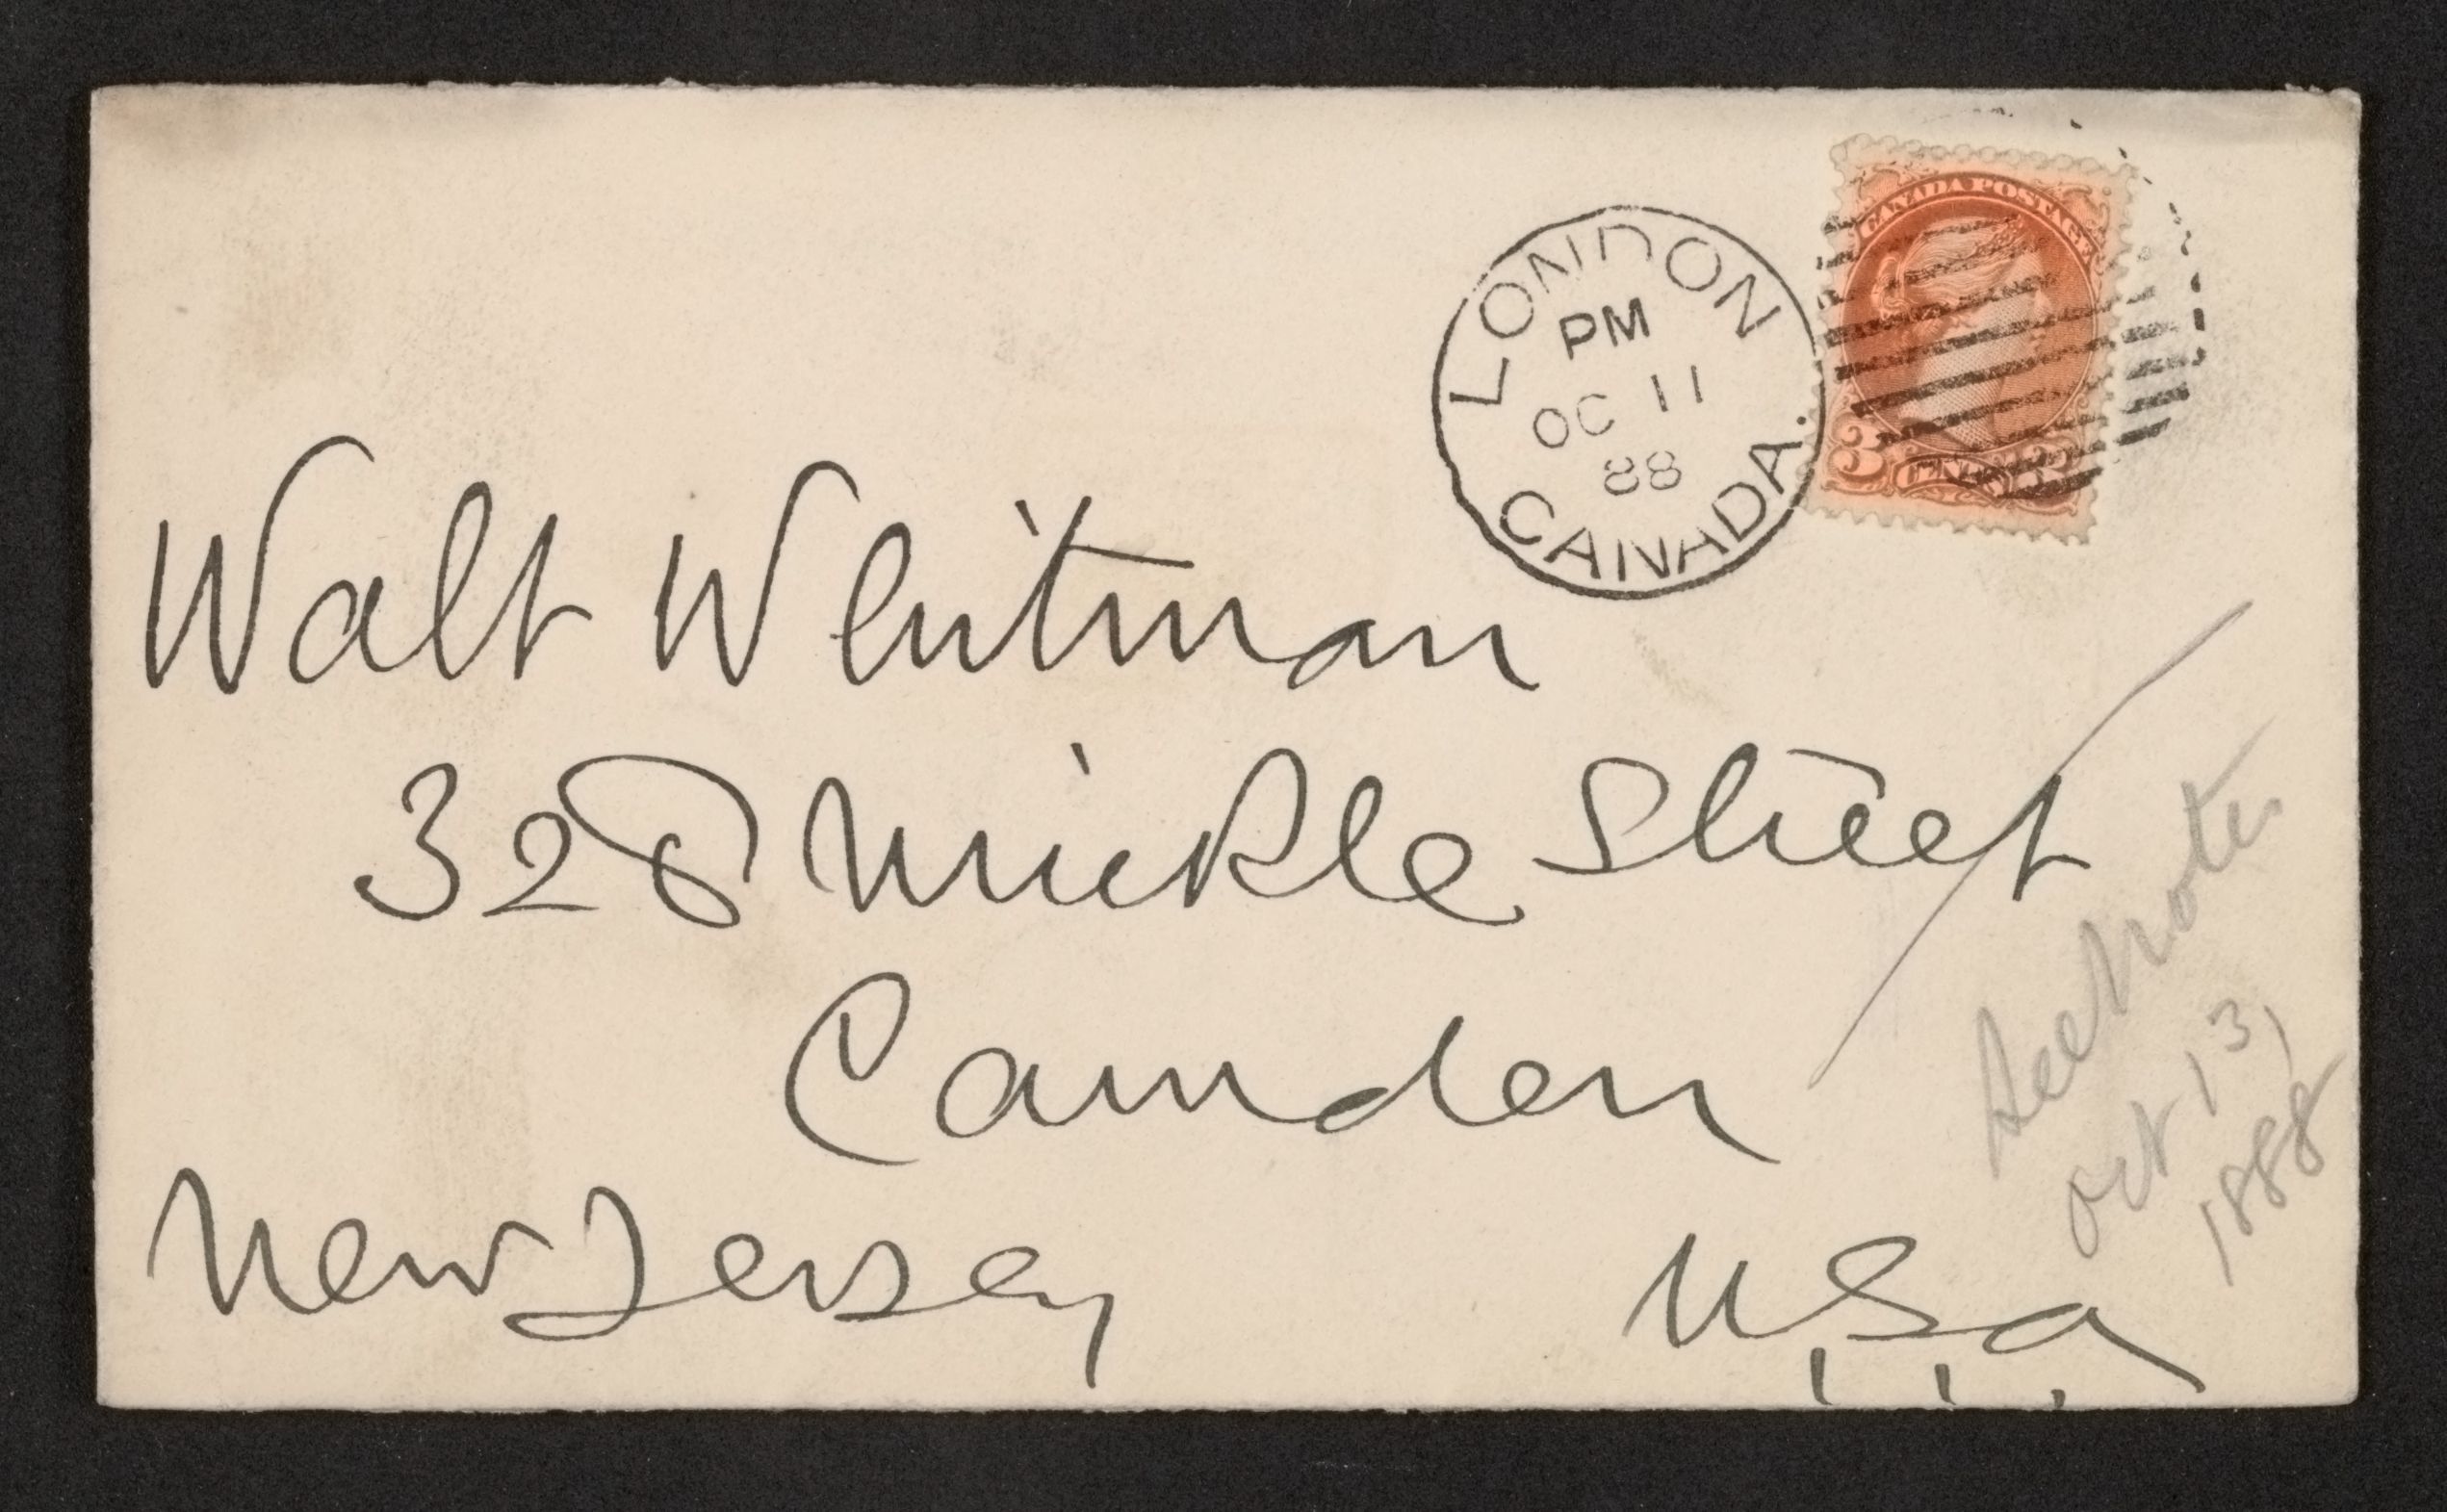 CANADA POSTAGE
3 CENTS 3
LONDON
PM
OC 11
88
CANADA.
Walt Whitman
328 Mickle Street
Camden
New Jersey
U.S.a.
see notes
Oct 13,
1888